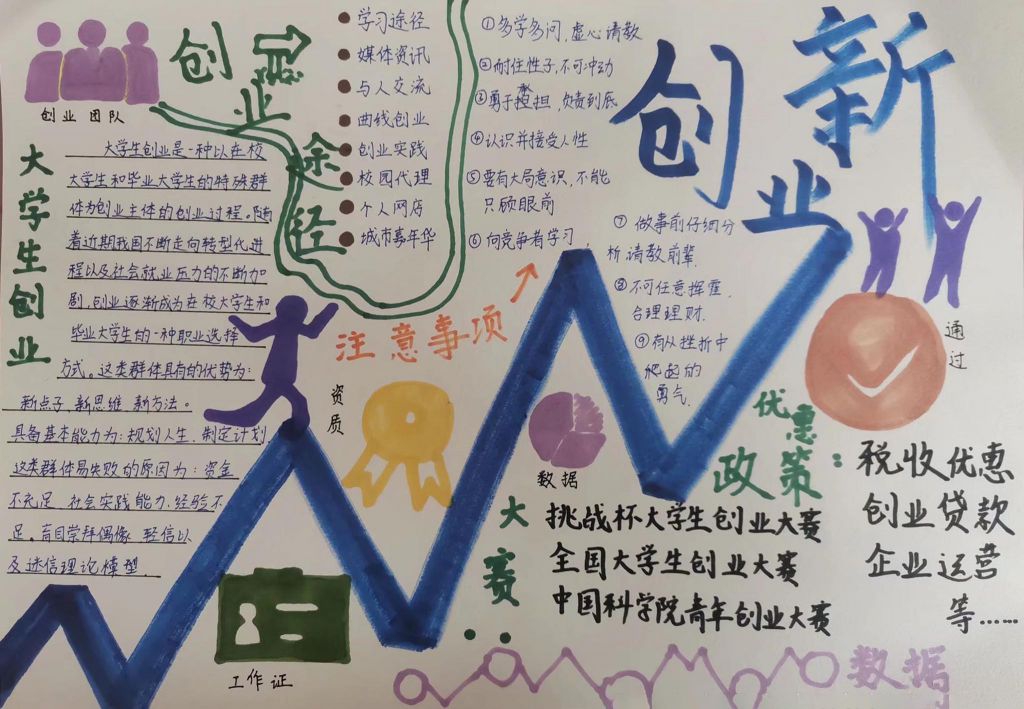 创新
创业
创业团队
创业
途径
学习途径
媒体资讯
与人交流
曲线创业
创业实践
校园代理
个人网店
城市嘉年华
①多学多问,虚心请教
②耐住性子,不可冲动
③勇于承担,负责到底
④认识并接受人性
⑤要有大局意识,不能
只顾眼前
⑥向竞争者学习
⑦做事前仔细分
析,请教前辈.
⑧不可任意挥霍.
合理理财.
⑨有从挫折中
爬起的
勇气.
注意事项
大学生创业
大学生创业是一种以在校
大学生和毕业大学生的特殊群
体为创业主体的创业过程。随
着近期我国不断走向转型代进
程以及社会就业压力的不断加
剧,创业逐渐成为在校大学生和
毕业大学生的一种职业选择
方式。这类群体具有的优势为:
新点子,新思维,新方法。
具备基本能力为:规划人生,制定计划.
这类群体易失败的原因为:资金
不充足,社会实践能力,经验不
足。盲目崇拜偶像,轻信以
及迷信理论模型.
资质
数据
通过
优惠
政策:
税收优惠
创业贷款
企业运营
等……
大赛:
挑战杯大学生创业大赛
全国大学生创业大赛
中国科学院青年创业大赛
工作证
数据